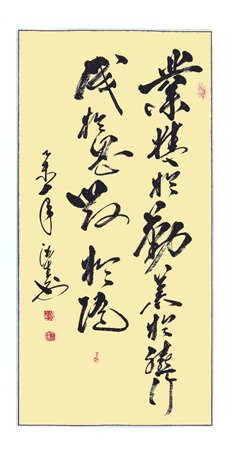 業精於勤荒於嬉行
成於思毀於隨
年